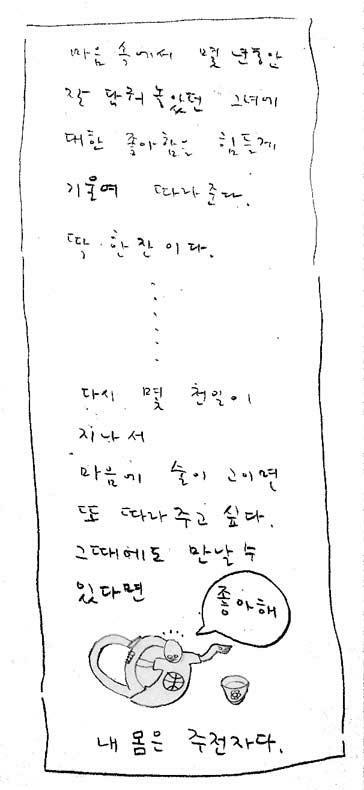 마음 속에서 몇 년동안
잘 담궈 놓았던 그녀에
대한 좋아함을 힘들게
기울여 따라준다.
딱 한 잔이다.
다시 몇 천일이
지나서
마음에 술이 고이면
또 따라주고 싶다.
그때에도 만날 수
있다면
좋아해
내 몸은 주전자다.